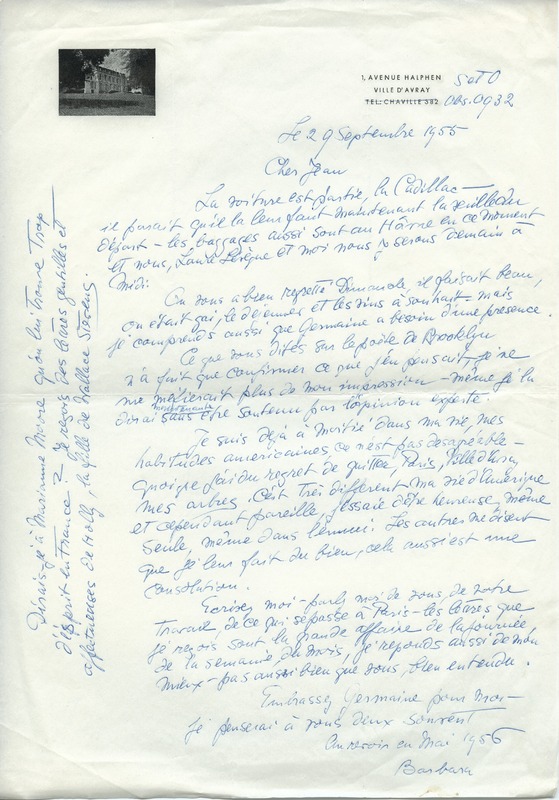 1, AVENUE HALPHEN
VILLE D'AVRAY
TEL: CHAVILLE 582
Obs. 0932
Le 29 Septembre 1955
Cher Jean
La voiture est partie, la Cadillac —
il parait qu'il la leur faut maintenant la veille du
départ — les bagages aussi sont au Hâvre en ce moment
et nous, et moi nous y serons demain à
midi.
On vous a bien regretté Dimanche, il faisait beau,
on était gai, le déjeuner et les vins à souhait — mais
je comprends aussi que Germaine a besoin d'une présence.
Ce que vous dites sur le poète de Brooklyn
n'a fait que confirmer ce que j'en pensait, je ne
me méfierait plus de mon impression — même je la
dirai maintenant sans être soutenu par l'opinion experte.
Je suis déjà à moitié dans ma vie, mes
habitudes americaines, ce n'est pas desagréable —
quoique j'ai du regret de quitter Paris, Ville d'Avray,
mes arbres. C'est très different ma vie d'Amérique
et cependant pareille, j'essaie d'être heureuse, même
seule, même dans l'ennui. Les autres me disent
que je leur fait du bien, cela aussi est une
consolation.
Ecrivez moi — parlez moi de vous, de votre
travail, de ce qui se passe à Paris — les lettres que
je reçois sont la grande affaire de la journée,
de la semaine, du mois, je reponds aussi de mon
mieux — pas aussi bien que vous, bien entendu.
Embrassez Germaine pour moi —
je penserai à vous deux souvent
Au revoir en Mai 1956
Barbara
Dirais-je à Marianne Moore qu'on lui trouve trop
d'esprit en France? Je reçois des lettres gentilles et
affectueuses de Holly, la fille de Wallace Stevens.